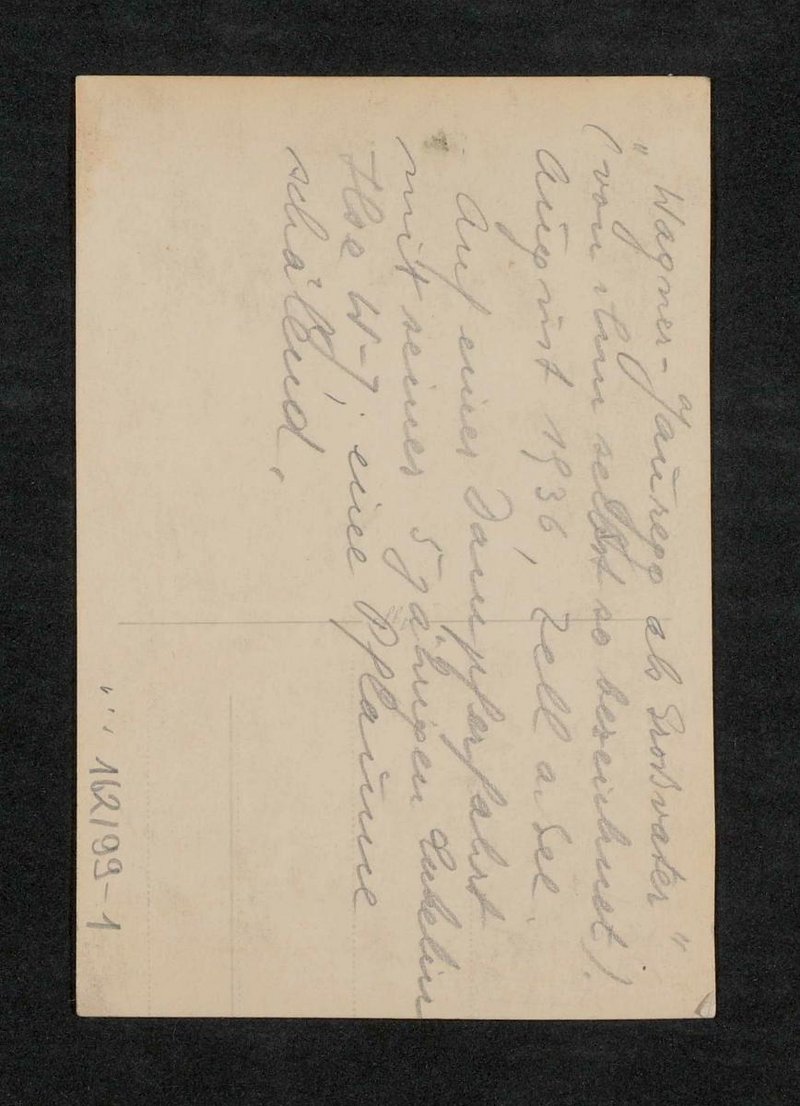 "Wagner-Jauregg als Großvater"
(von ihm selbst so bezeichnet).
August 1936, Zell a. See.
Auf einer Dampferfahrt
mit seiner 5 jährigen Enkelin
Ilse W-J, eine Pflaume
schälend.
162/99-1